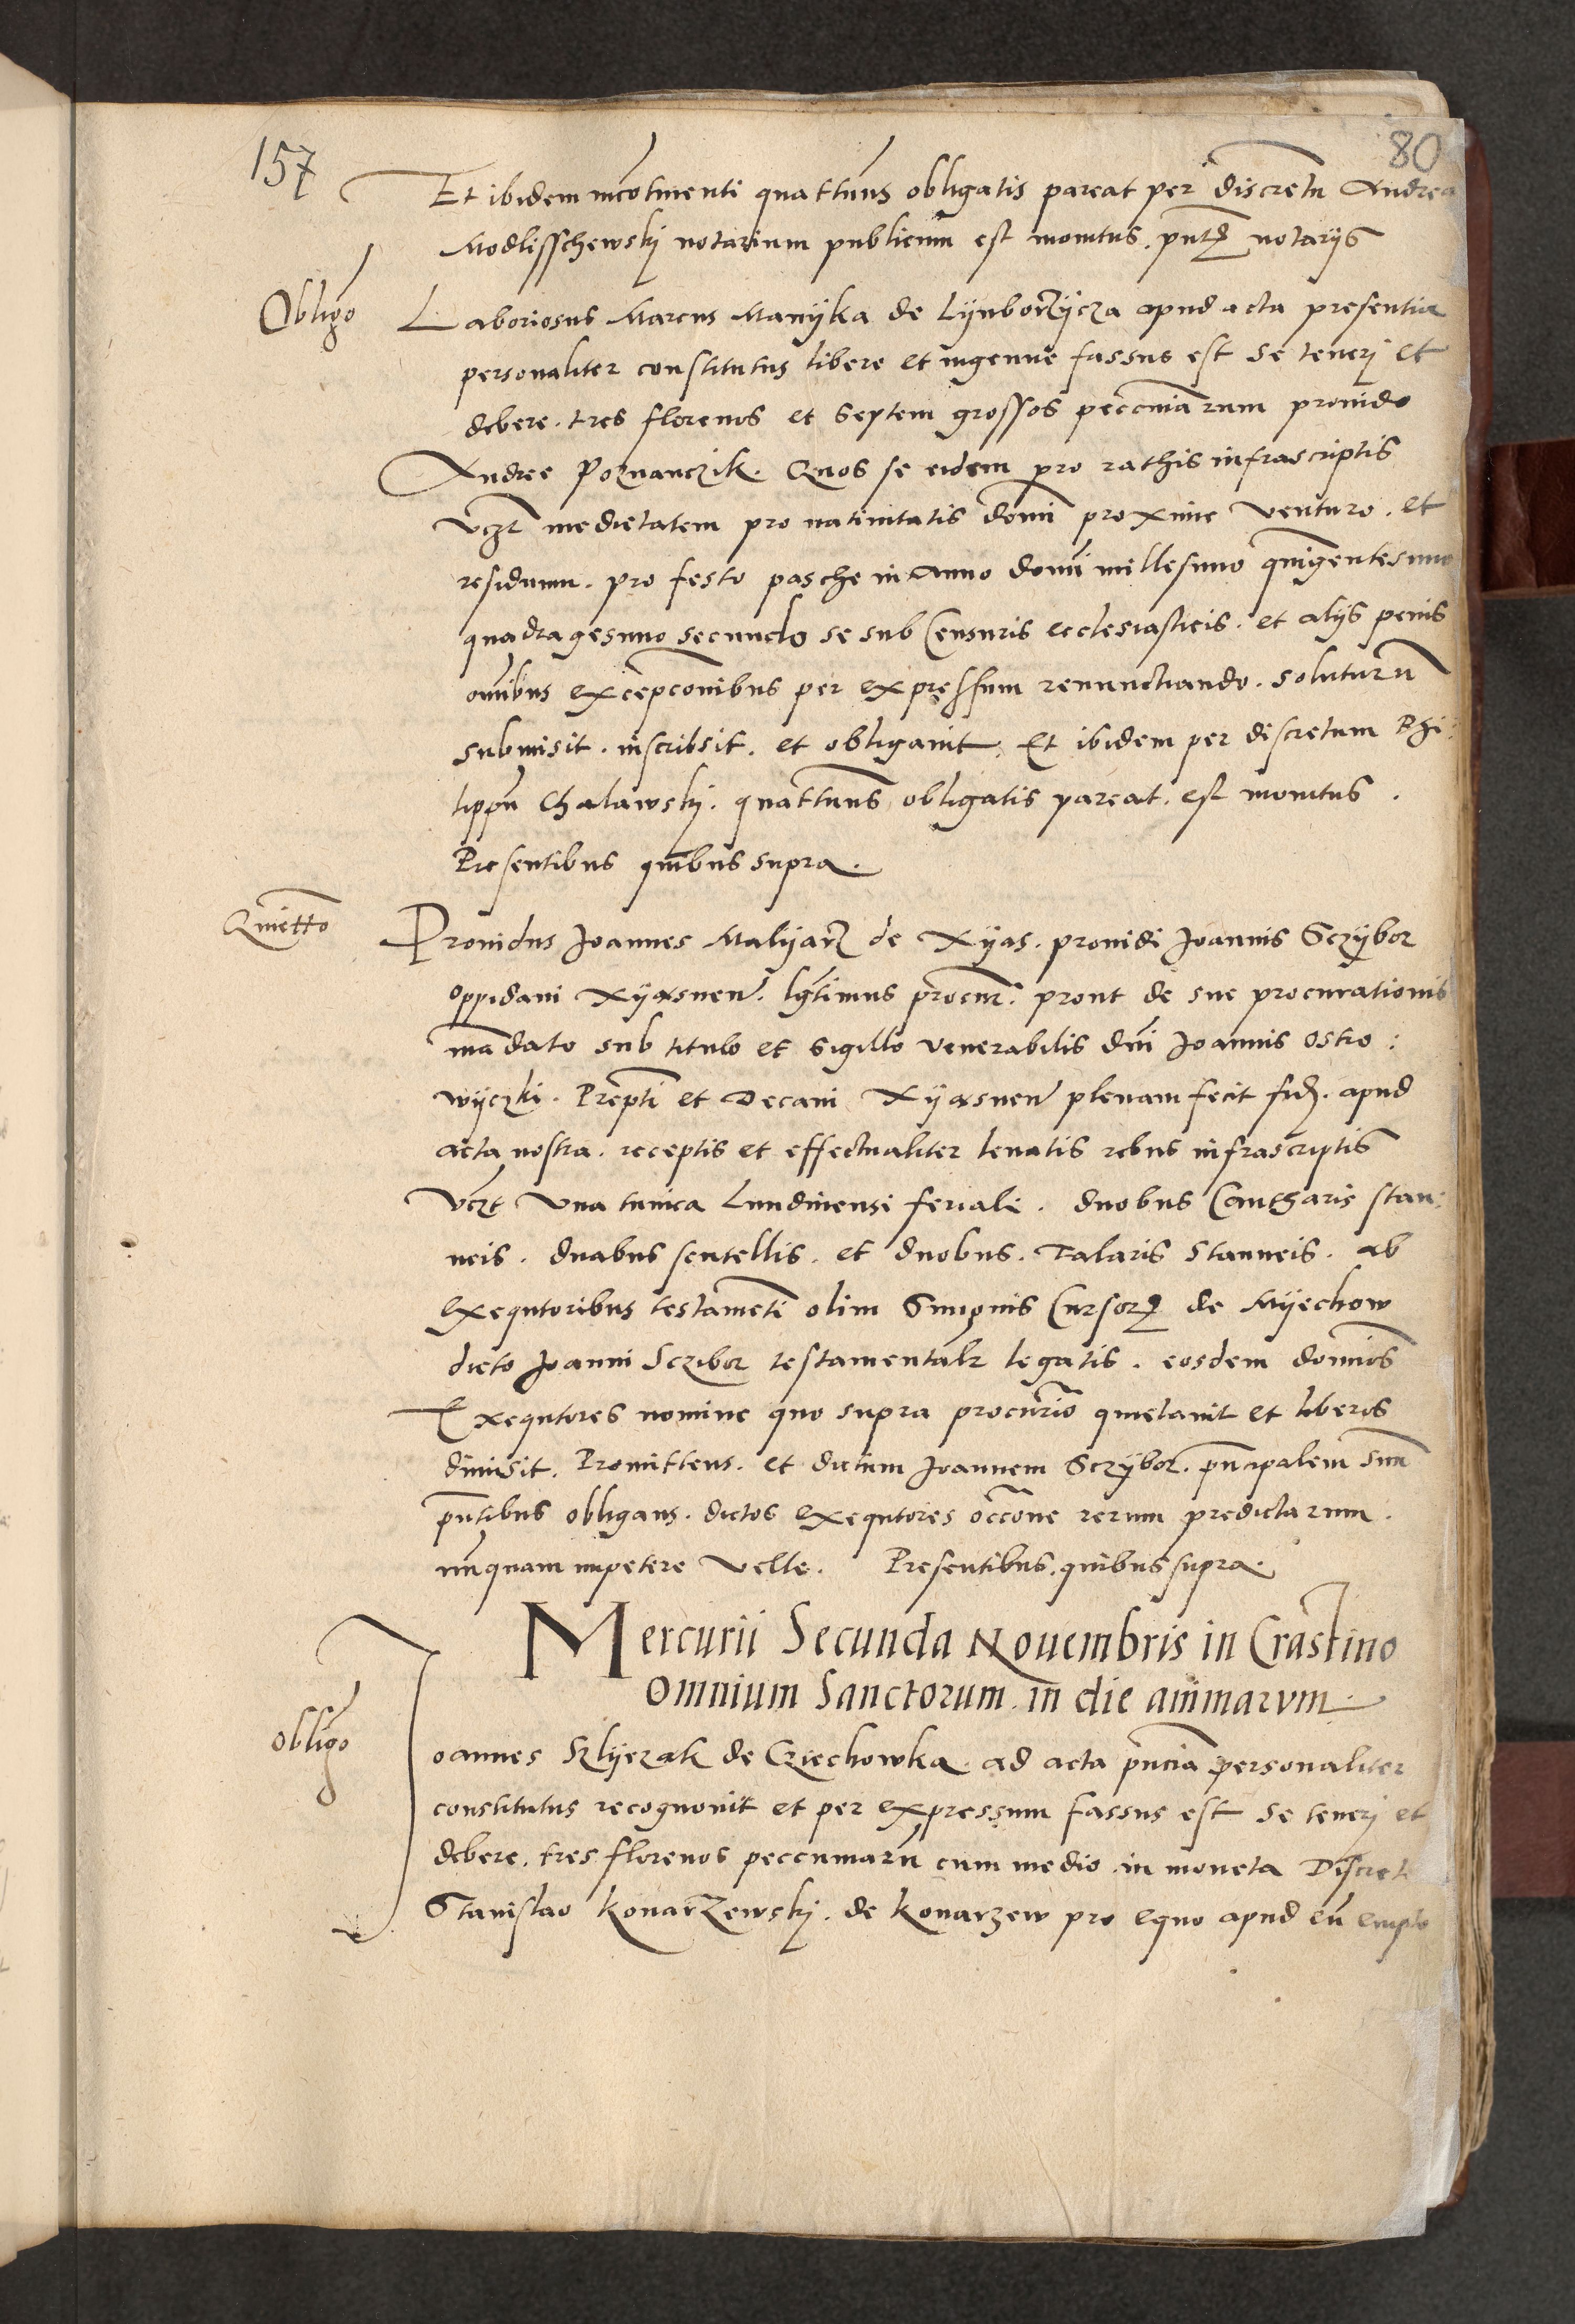 157
80
Et ibidem incōtinenti quattūus obligatis pareat per discretū Andreā
Modlisschewskj notarium publicum est monitus. pn̄tꝫ notarijs
Obligō
Laboriosus Marcus Manijka de Lijnborzijcza apud acta presentia
personaliter constitutus libere et ingenue fassus est se tenerj et
debere. tres florenos et septem grossos peccuniarum prouido
Andree Poznanczik. Quos se eidem pro rathis infrascriptis
vczt medietatem pro natiuitatis domī proxime venturo. et
residuum. pro festo pasche in Anno domī millesimo quīgentesimo
quadragesimo secundo se sub Censuris ecclesiasticis. et alijs penis
omībus excepconibus per expressum renunctiando. soluturū
submisit. inscribsit. et obligauit. Et ibidem per discretum Phi:
lippū Chalawskj. quattūus obligatis pareat. est monitus.
Presentibus quibus supra.
Quiettō
Prouidus Joannes Malijarz de Xijas. prouidi Joannis Sczijbor
oppidani Xijasnen. lḡtimus procur. prout de sue procurationis
mādato sub titulo et sigillo venerabilis dnī Joannis Ostro:
wijczki. Prepti et Decani Xijasnen plenam fecit fid. apud
acta nostra. receptis et effectualiter leuatis rebus infrascriptis
vczt Vna tunica Lundinensi feriale. duobus Cantharis stan:
neis. duabus scutellis. et duobus. Talaris stanneis. ab
exequtoribus testamēti olim Simonis Cursorꝫ de Mijechow
dicto Joanni Sczibor testamentalr legatis. eosdem domīos
Exequtores nomine quo supra procurio quietauit et liberos
dimisit. Promittens. et dictum Joannem Sczijbor. pn̄cipalem suū
pn̄tibus obligans. dictos exequtores occōne rerum predictarum.
nunquam impetere velle. Presentibus. quibus supra.
Mercurii Secunda Nouembris in Crastino
Omnium Sanctorum in die animarvm.
obligō
Joannes Szlijezak de Cziechowka. ad acta pn̄cia personaliter
constitutus recognouit et per expressum fassus est se tenerj et
debere. tres florenos peccuniarū cum medio in moneta Discreto
Stanislao Konarzewskj. de Konarzew pro equo apud eū empto